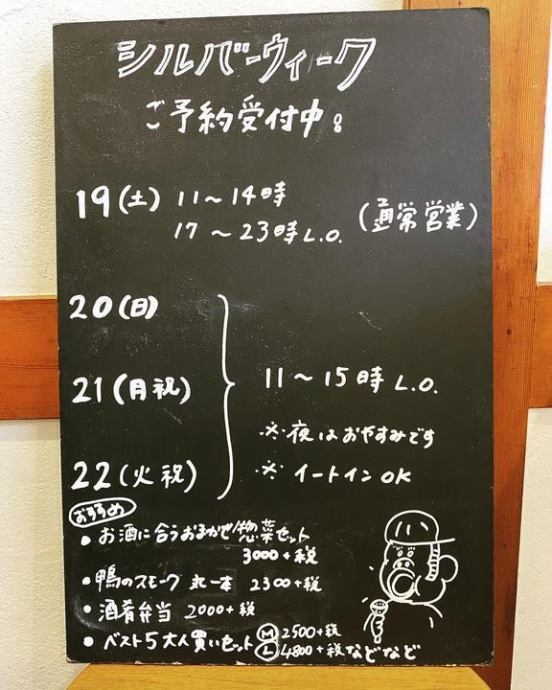 シルバーウィーク
ご予約受付中。
19(土) 11〜14時
17〜23時L.O. (通常営業)
20(日)
21(月祝) 11〜15時L.O.
※夜はおやすみです
22(火祝) ※イートインOK
おすすめ
・お酒に合うおまかせ惣菜セット
3000+税
・鴨のスモーク 丸一本 2300+税
・酒肴弁当 2000+税
・ベスト5大人買いセット Ⓜ 2500+税
Ⓛ 4800+税などなど